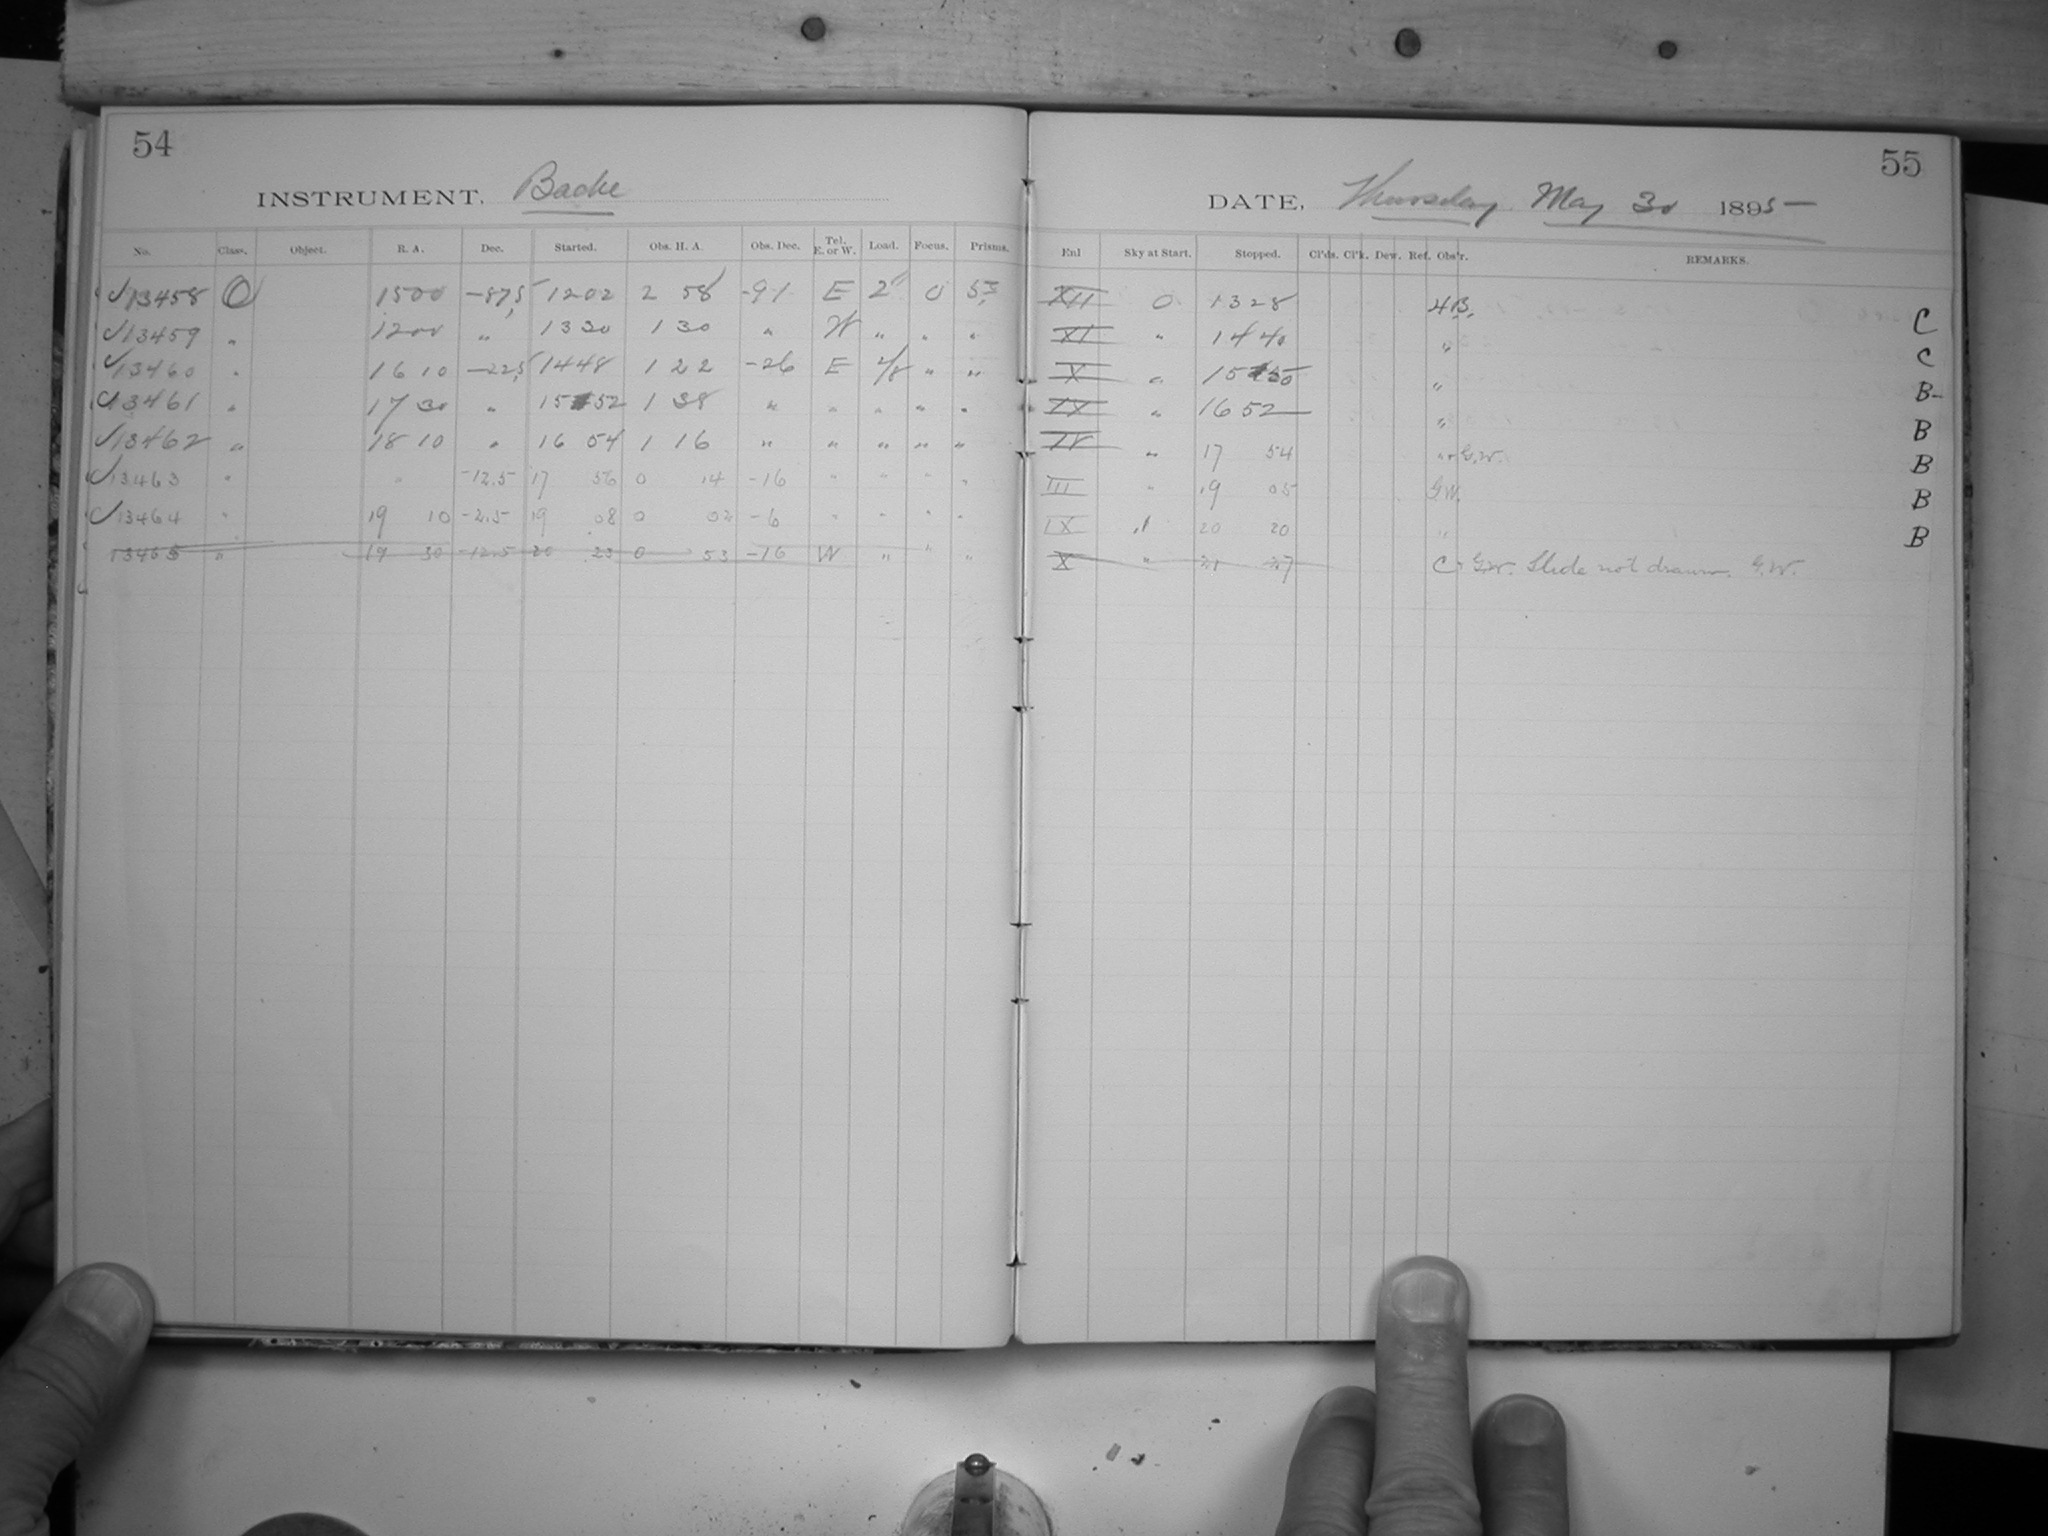 54
INSTRUMENT. Bache
No. Class. Object. R. A. Dec. Started. Obs. H. A. Obs. Dec. Tel. E. or W. Load. Focus. Prisms.
✓13458 O 1500 -87.5 1202 2 58 -91 E 2 0 5,I
✓13459 " 1200 " 1330 1 30 " W " " "
✓13460 " 16 10 -22.5 1448 1 22 -26 E 4/8 " "
✓13461 " 17 30 " 15 52 1 38 " " " " "
✓13462 " 18 10 " 16 54 1 16 " " " " "
✓13463 " " -12.5 17 56 0 14 -16 " " " "
✓13464 " 19 10 -2.5 19 08 0 02 -6 " " " "
13465 " 19 30 -12.5 20 23 0 53 -16 W " " "
55
DATE. Thursday May 30 1895
Enl Sky at Start. Stopped. Cl'ds. Cl'k. Dew. Ref. Obs'r. REMARKS.
XII 0 1328 4B. C
XI " 1440 " C
X " 15 50 " B-
IX " 16 52 " B
IV " 17 54 " + G.W. B
III " 19 05 G.W. B
IX " 20 20 " B
X " 21 27 C G.W. Slide not drawn. G.W.